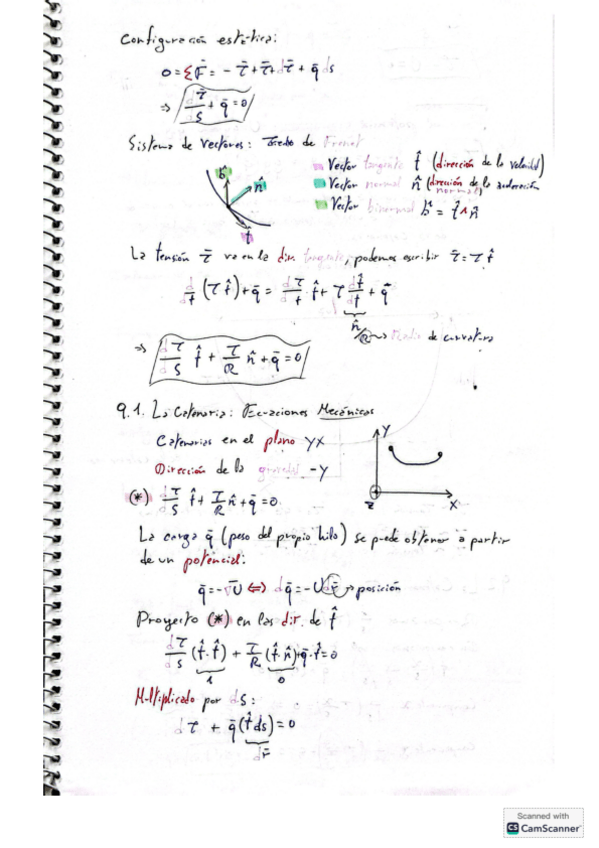 Configuración estática:
0 = ΣF̄ = - τ̄ + τ̄ + dτ̄ + q̄ ds
⇒ dτ̄/ds + q̄ = 0
Sistema de vectores: Triedro de Frenet
b̂
n̂
t̂
Vector tangente t̂ (dirección de la velocidad)
Vector normal n̂ (dirección de la aceleración normal)
Vector binormal b̂ = t̂ ∧ n̂
La tensión τ̄ va en la dir. tangente, podemos escribir τ̄ = τ t̂
d/dt (τ t̂) + q̄ = dτ/dt t̂ + τ dt̂/dt + q̄
n̂/R → radio de curvatura
⇒ dτ/ds t̂ + τ/R n̂ + q̄ = 0
9.1. La Catenaria: Ecuaciones Mecánicas
Catenarias en el plano yx
Dirección de la gravedad -y
y
x
z
(*) dτ/ds t̂ + τ/R n̂ + q̄ = 0.
La carga q̄ (peso del propio hilo) se puede obtener a partir
de un potencial:
q̄ = -∇U ⇔ dq̄ = -U dr̄ → posición
Proyecto (*) en las dir de t̂
dτ/ds (t̂·t̂) + τ/R (t̂·n̂) + q̄·t̂ = 0
1
0
Multiplicado por ds:
dτ + q̄(t̂ ds) = 0
dr̄
Scanned with
CS CamScanner